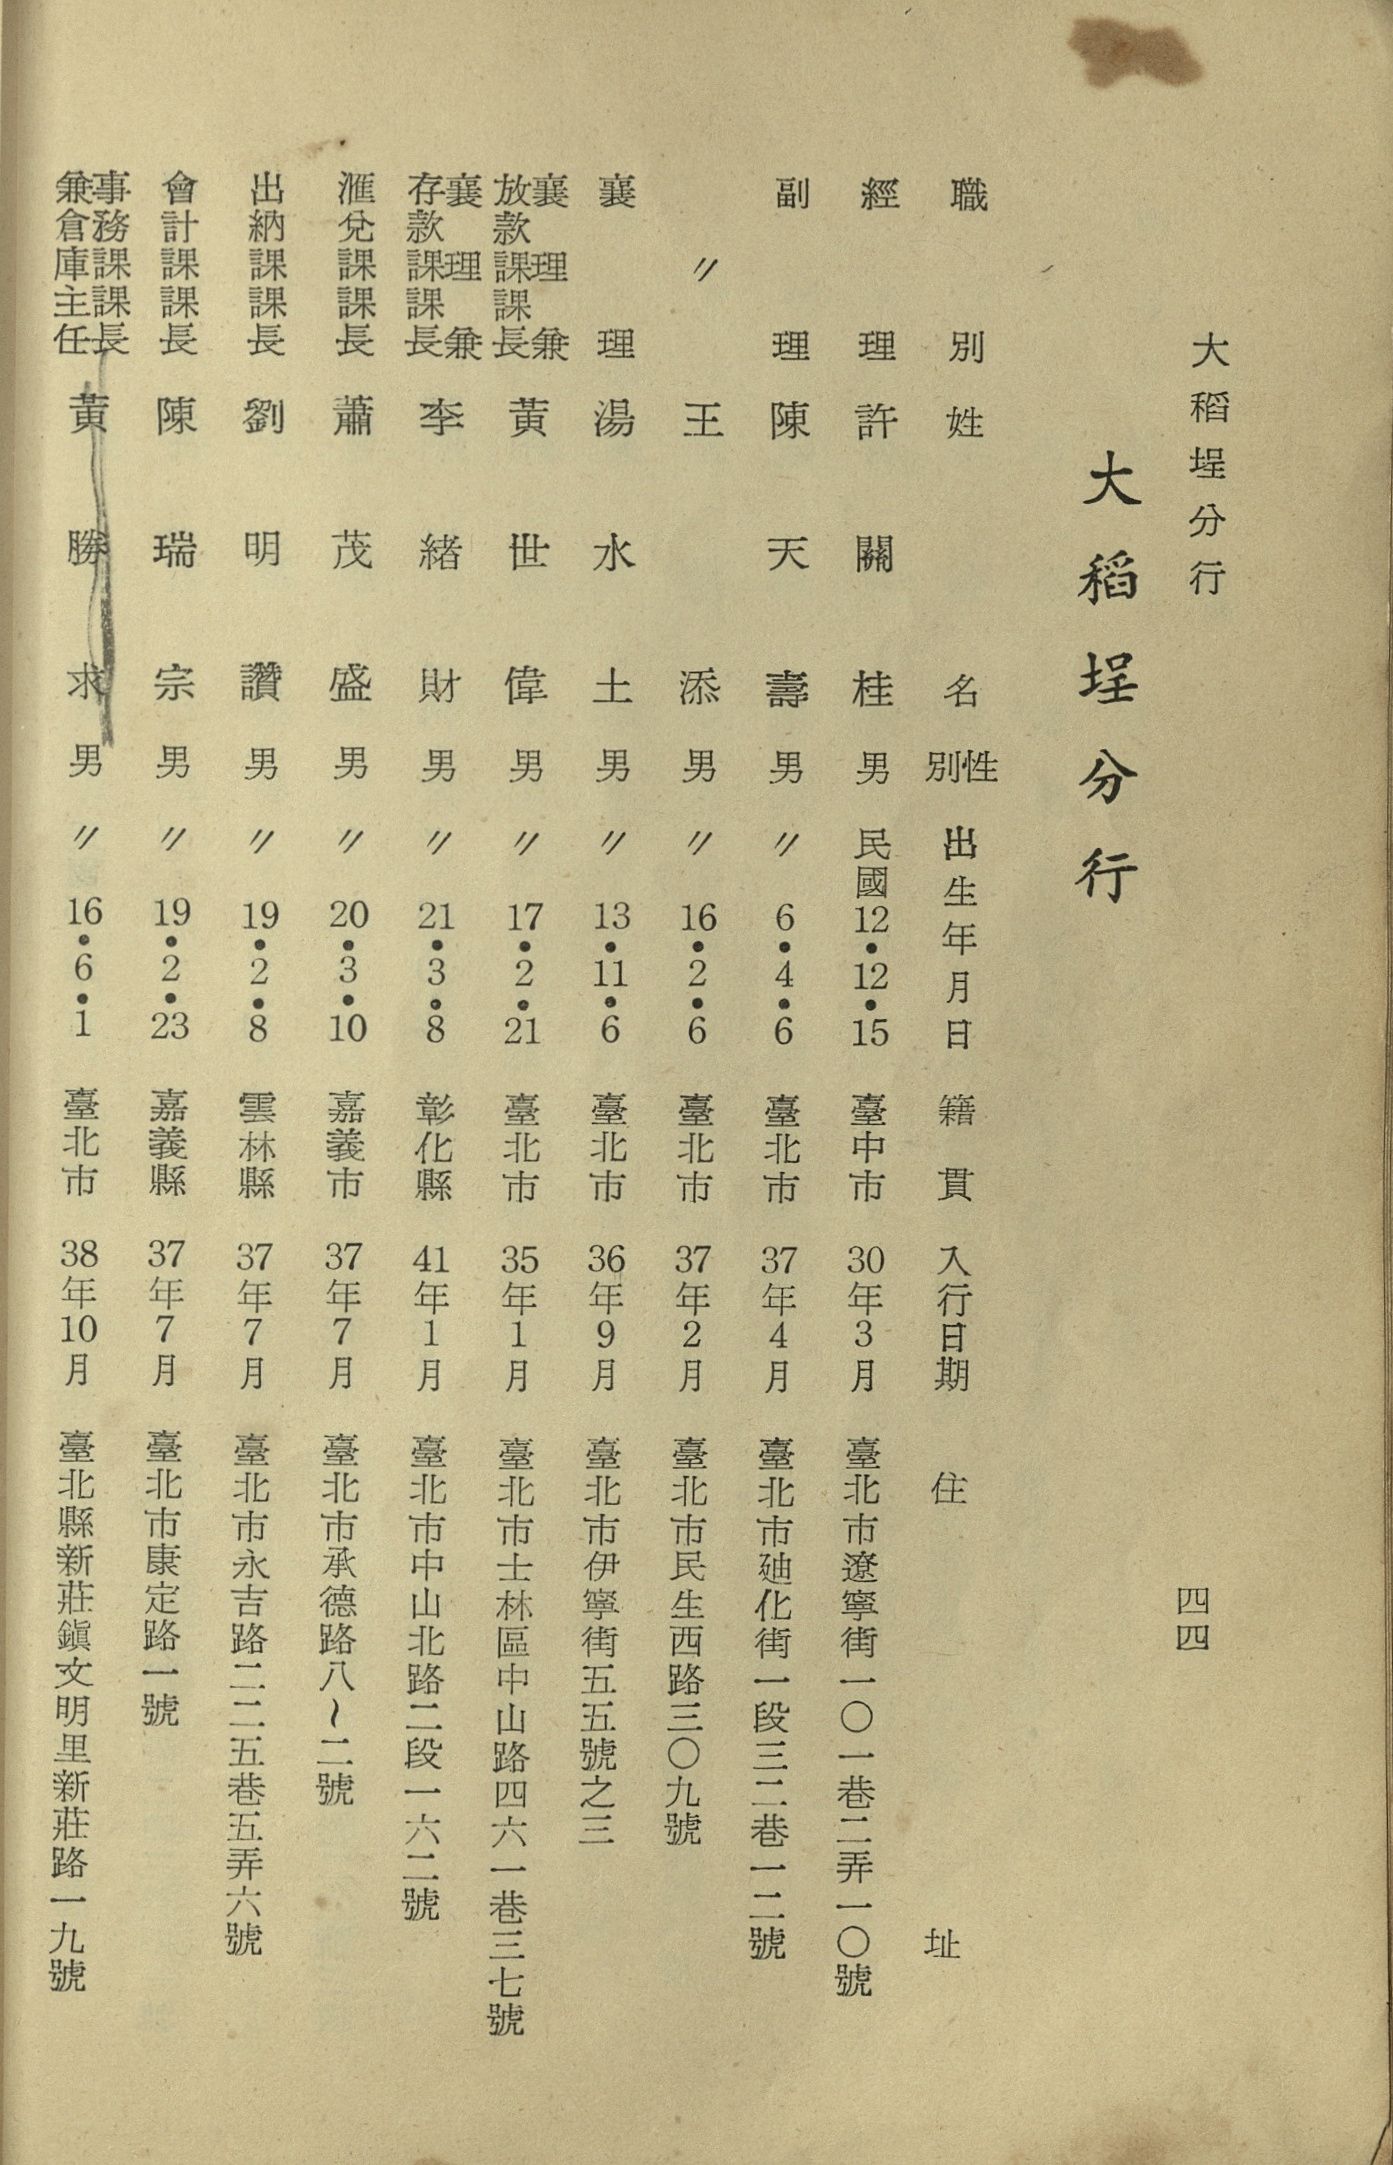 大稻埕分行
四四
大稻埕分行
職別 姓名 性別 出生年月日 籍貫 入行日期 住址
經理 許關桂 男 民國12•12•15 臺中市 30年3月 臺北市遼寧街一〇一巷二弄一〇號
副理 陳天壽 男 〃 6•4•6 臺北市 37年4月 臺北市廸化街一段三二巷一二號
〃 王添 男 〃 16•2•6 臺北市 37年2月 臺北市民生西路三〇九號
襄理 湯水土 男 〃 13•11•6 臺北市 36年9月 臺北市伊寧街五五號之三
襄理兼放款課課長 黃世偉 男 〃 17•2•21 臺北市 35年1月 臺北市士林區中山路四六一巷三七號
襄理兼存款課課長 李緒財 男 〃 21•3•8 彰化縣 41年1月 臺北市中山北路二段一六二號
滙兌課課長 蕭茂盛 男 〃 20•3•10 嘉義市 37年7月 臺北市承德路八~二號
出納課課長 劉明讚 男 〃 19•2•8 雲林縣 37年7月 臺北市永吉路二二五巷五弄六號
會計課課長 陳瑞宗 男 〃 19•2•23 嘉義縣 37年7月 臺北市康定路一號
事務課課長兼倉庫主任 黃勝求 男 〃 16•6•1 臺北市 38年10月 臺北縣新莊鎭文明里新莊路一九號